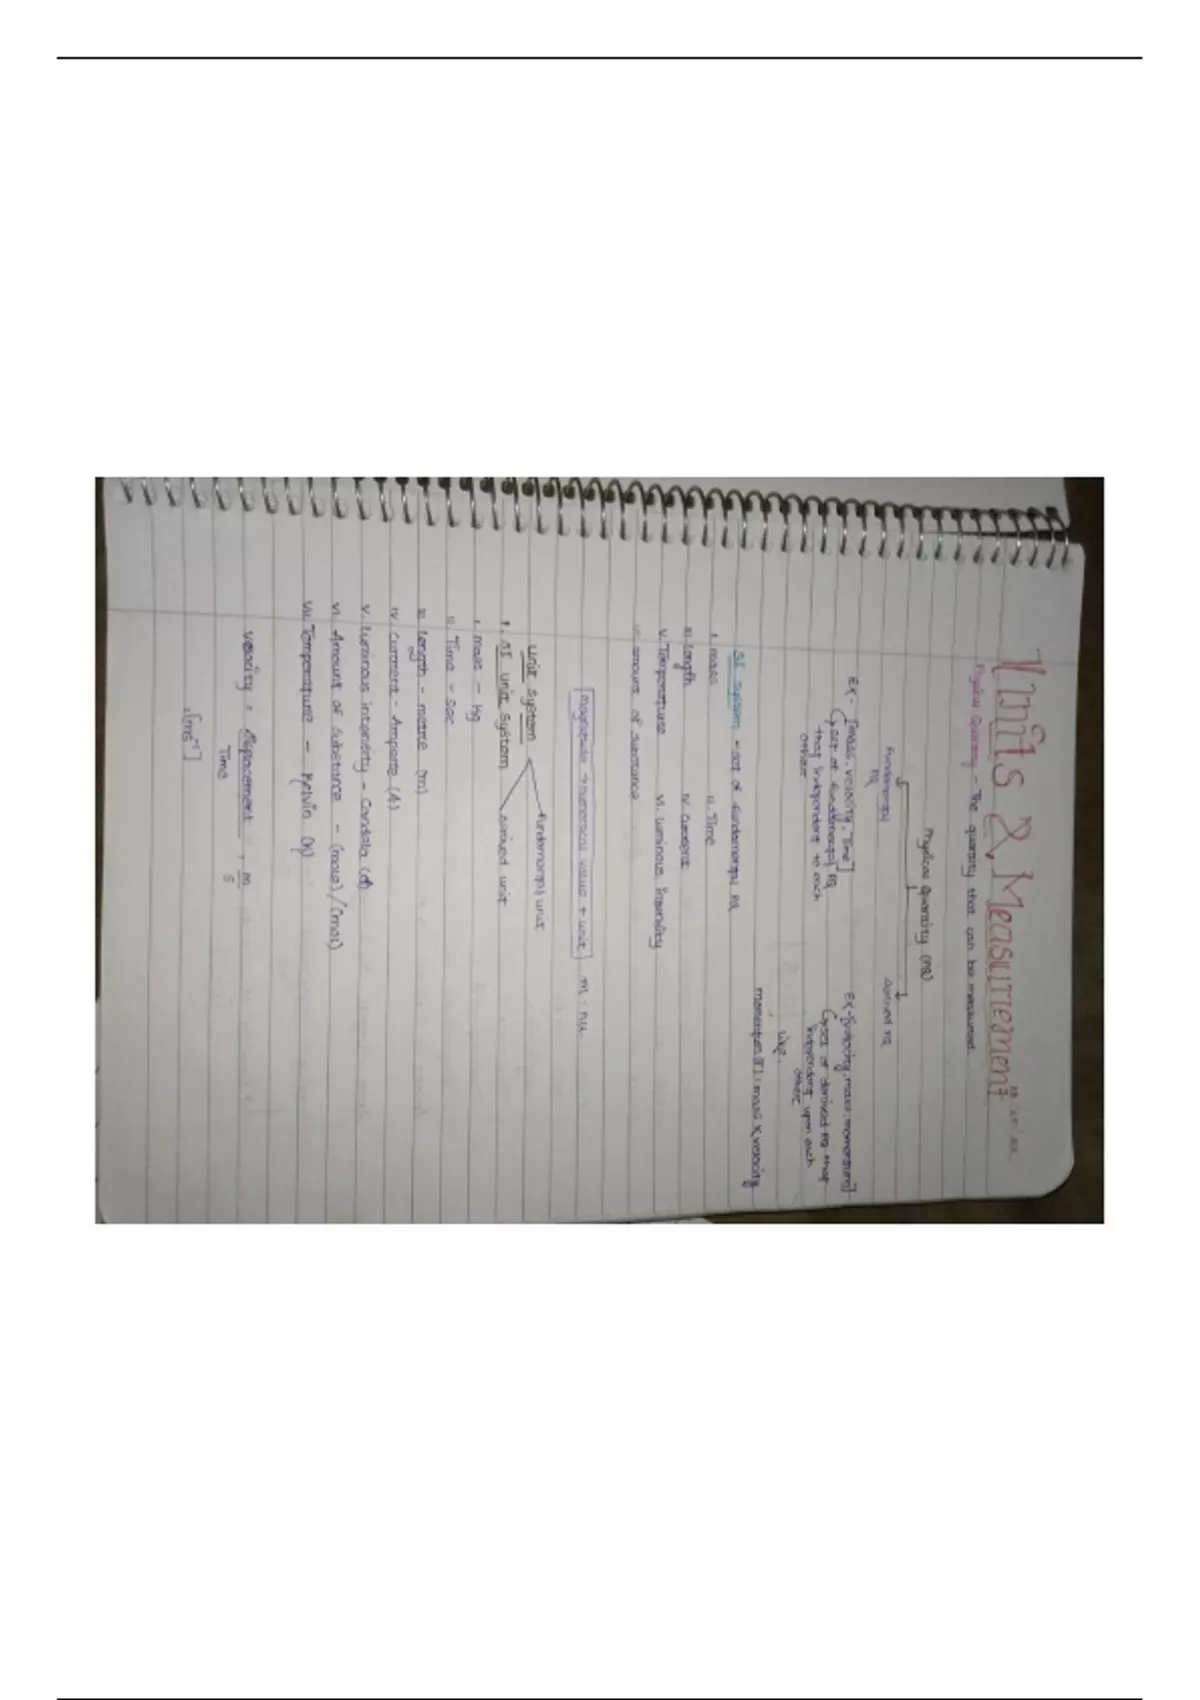 Units & Measurement
Physical Quantity - The quantity that can be measured.
Physical Quantity (PQ)
Fundamental PQ
Derived PQ
Ex - [mass, velocity, Time]
set of fundamental PQ
that independent to each
other
Ex - [velocity, mass, momentum]
set of derived PQ that
independent upon each
other
like.
momentum (P) = mass x velocity
SI system - set of fundamental PQ
i. mass
ii. Time
iii. Length
iv. Current
v. Temperature
vi. Luminous Intensity
vii. amount of substance
magnitude → numerical value + unit
m = nu
Unit System
fundamental unit
derived unit
1. SI unit System
i. mass - kg
ii. Time - sec
iii. Length - metre (m)
iv. Current - Ampere (A)
v. Luminous intensity - Candela (cd)
vi. Amount of Substance - (mole)/(mol)
vii. Temperature - Kelvin (K)
Velocity = displacement / Time = m / s
= [ms⁻¹]